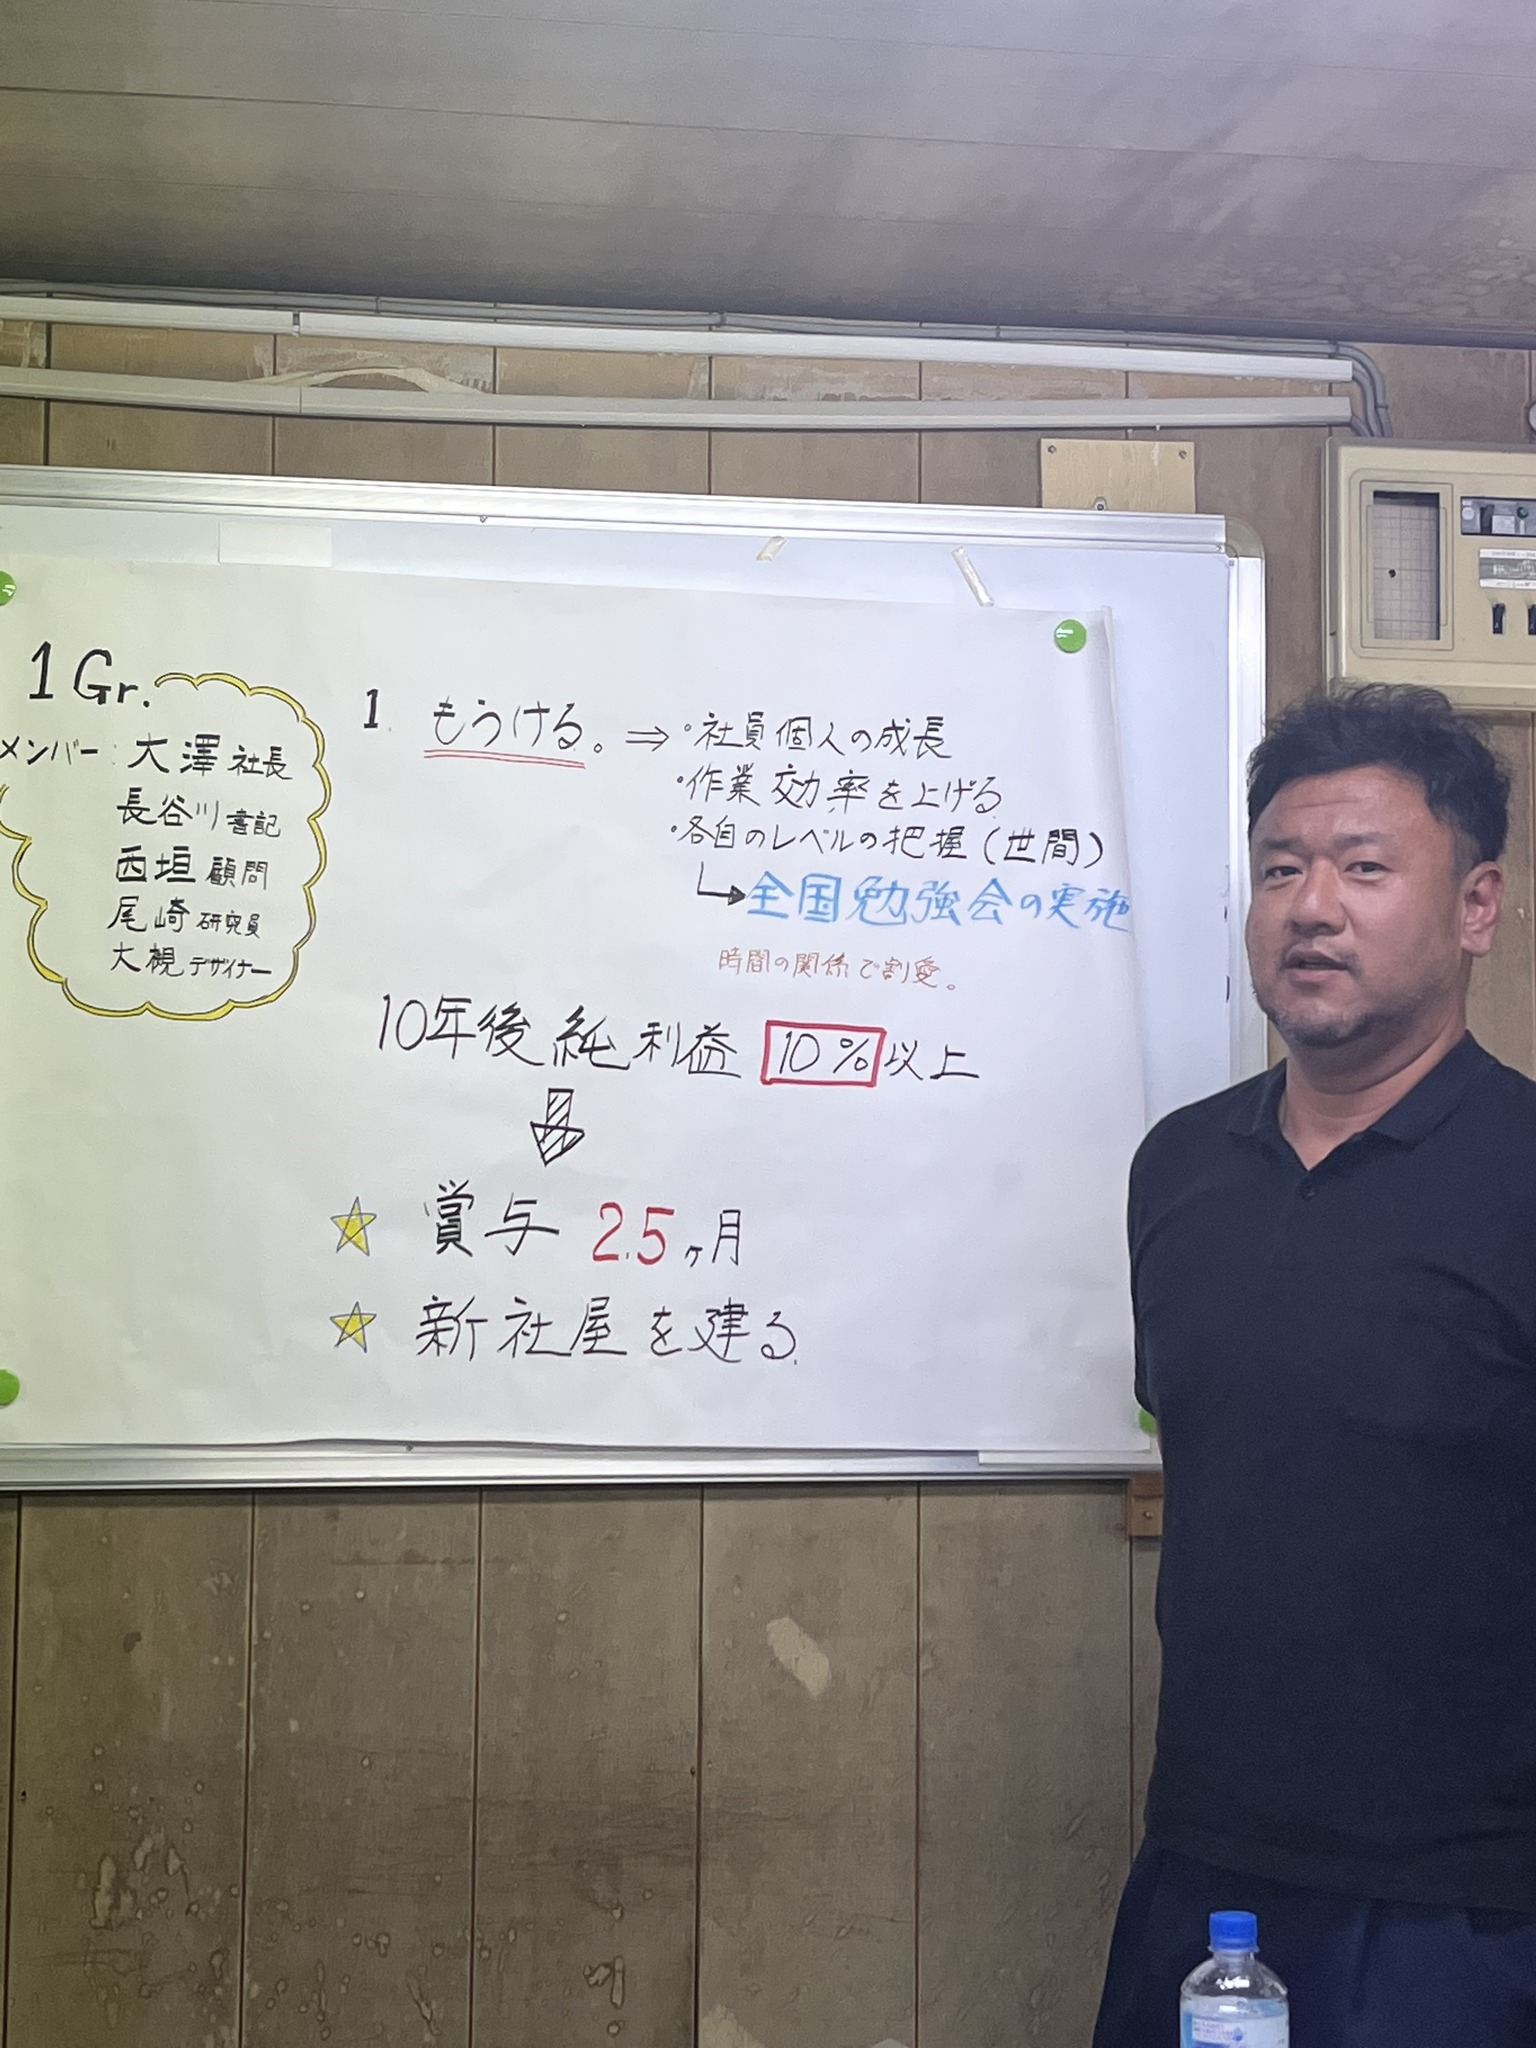 1Gr.
メンバー: 大澤 社長
長谷川 書記
西垣 顧問
尾崎 研究員
大槻 デザイナー
1. もうける。⇒ ・社員個人の成長
・作業効率を上げる
・各自のレベルの把握(世間)
全国勉強会の実施
時間の関係で割愛。
10年後純利益 10%以上
☆ 賞与 2.5ヶ月
☆ 新社屋を建る.